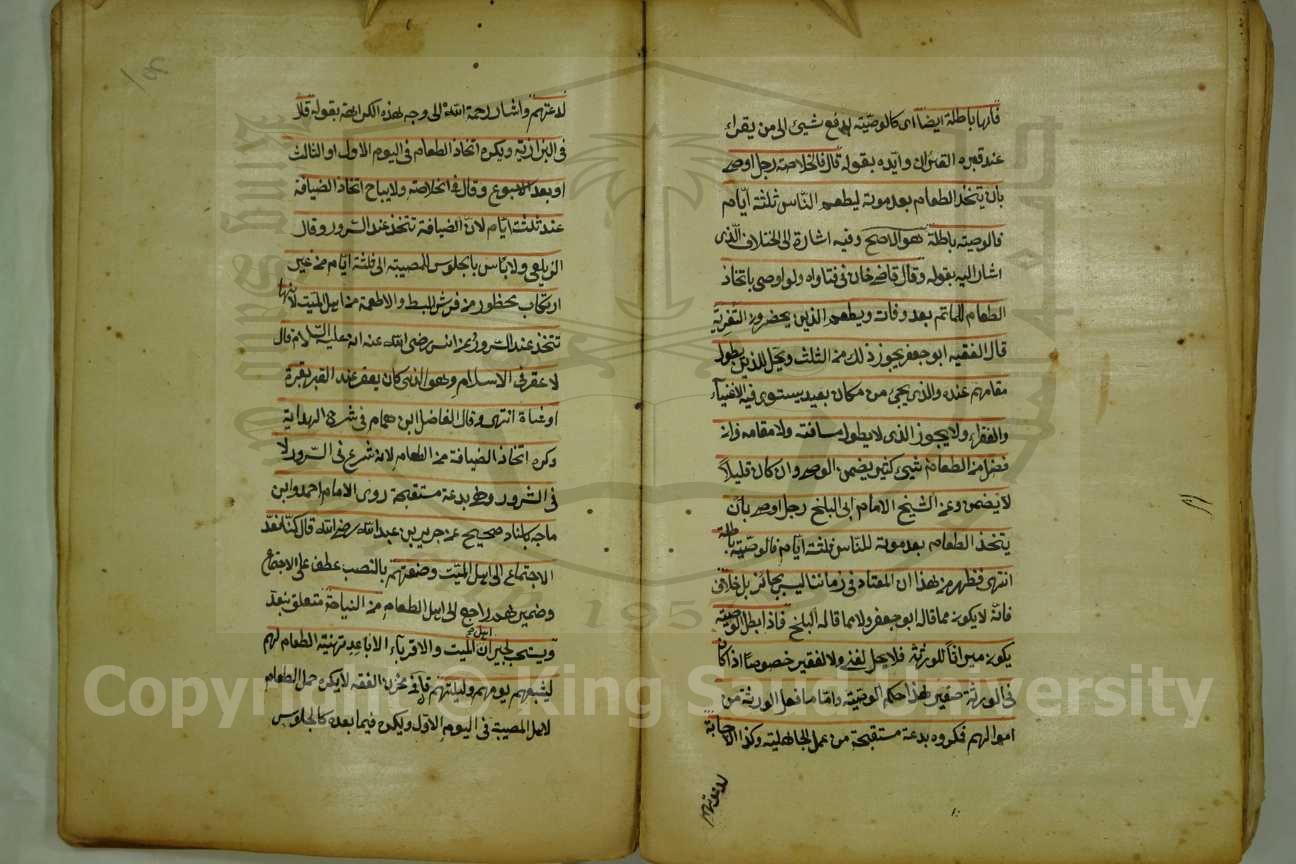 فانها باطلة ايضا اى كالوصيّة بدفع شيئ الى من يقراء
عند قبره القرٰان وايده بقوله قال فى الخلاصة رجل اوصى
بان يتخذ الطعام بعد موته ليطعم النّاس ثلثة ايّام
فالوصيّة باطلة هو الاصح وفيه اشارة الى اختلاف الّذى
اشار اليه بقوله وقال قاضيخان فى فتاواه ولو اوصى باتخاذ
الطعام للماتم بعد وفاته ويطعم الذين يحضرون التعزية
قال الفقيه ابو جعفر يجوز ذلك من الثلث ويحلّ للذين يطول
مقامهم عنده والذى يجئ من مكان بعيد يستوى فيه الاغنيآء
والفقراء ولا يجوز الذى لا يطول مسافته ولا مقامه فان
فضل من الطعام شيئ كثير يضمن الوصى وان كان قليلا
لا يضمن وعن الشيخ الامام ابى البلخى رجل اوصى بان
يتخذ الطعام بعد موته للناس ثلثة ايّام فالوصيّة باطلة
انتهى فظهر من هذا ان المعتاد فى زماننا ليس بجائز بلا خلاف
فانه لا يكون مما قاله ابو جعفر ولا مما قاله البلخى فاذا بطل الوصيّة
يكون ميراثاً للورثة فلا يحل لغنى ولا لفقير خصوصا اذا كان
فى الورثة صغير هذا حكم الوصيّة وامّا ما فعل الورثة من
اموالهم فمكروه بدعة مستقبحة من عمل الجاهلية وكذا الاجابة
لدعوتهم
لدعوتهم واشار رحمة الله الى وجه هذه الكراهة بقوله قال
فى البزازيّة ويكره اتخاذ الطعام فى اليوم الاول او الثالث
او بعد الاسبوع وقال فى الخلاصة ولا يباح اتخاذ الضيافة
عند ثلثة ايّام لانّ الضيافة تتخذ عند السّرور وقال
الزيلعى ولا باس بالجلوس للمصيبة الى ثلثة ايّام من غير
ارتكاب محظور من فرش البسط والاطعمة من اهل الميّت لانها
تتخذ عند السّرور وعن انس رضى الله عنه انه عليه السّلام قال
لا عقر فى الاسلام وهو الذى كان يعقر عند القبر بقرة
او شاة انتهى وقال الفاضل ابن همام فى شرح الهداية
وكره اتخاذ الضيافة من الطعام لانه شرع فى السّرور لا
فى الشرور وهى بدعة مستقبحة روى الامام احمد وابن
ماجه باسناد صحيح عن جرير بن عبد الله رضى الله قال كنّا نعدّ
الاجتماع الى اهل الميّت وصنعتهم بالنصب عطف على الاجتماع
وضمير هم راجع الى اهل الطعام من النياحة متعلق بنعدّ
ويستحب لجيران اهل الميّت والاقربآء الاباعد تهيئة الطعام لهم
ليشبعهم يومهم وليلتهم قال فى مخزن الفقه لا يكره حمل الطعام
لاهل المصيبة فى اليوم الاول ويكره فيما بعده كالجلوس
Copyright © King Saud University
1957